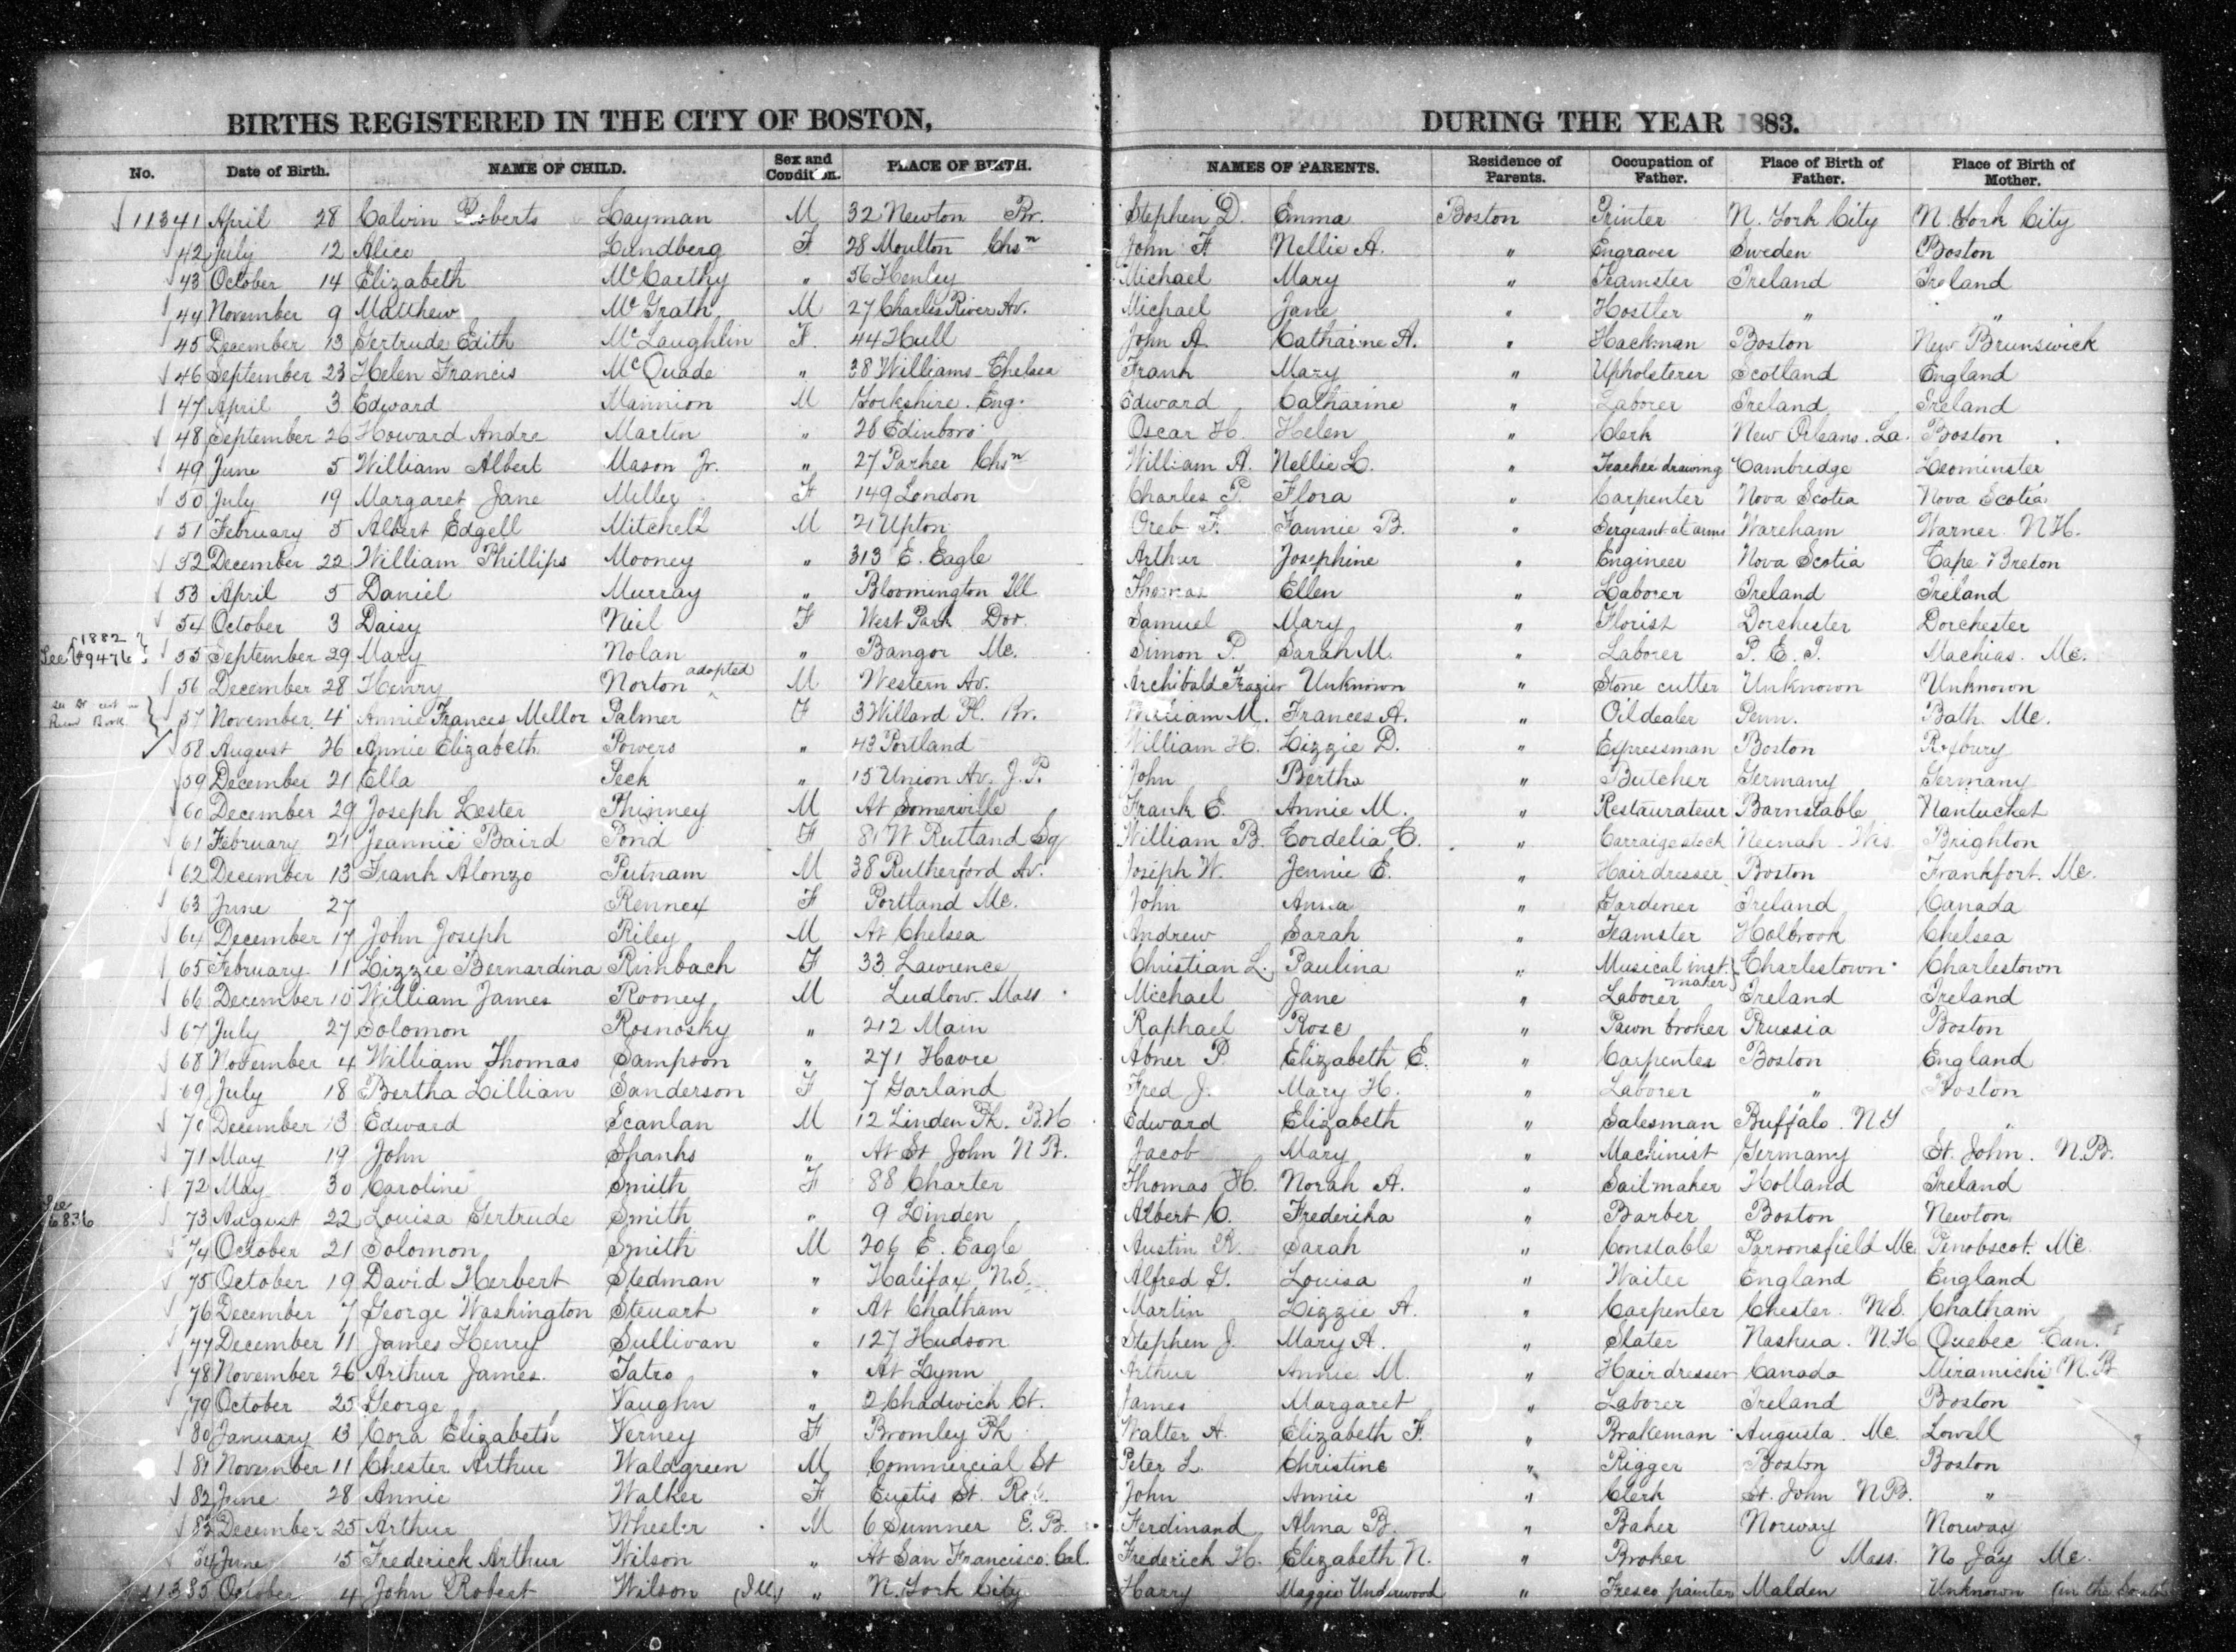 BIRTHS REGISTERED IN THE CITY OF BOSTON, DURING THE YEAR 1883.
No. Date of Birth. NAME OF CHILD. Sex and Condition. PLACE OF BIRTH. NAMES OF PARENTS. Residence of Parents. Occupation of Father. Place of Birth of Father. Place of Birth of Mother.
11341 April 28 Calvin Roberts Layman M 32 Newton Br. Stephen D. Emma Boston Printer N. York City N. York City
42 July 12 Alice Lundberg F 28 Moulton Chsn John F. Nellie A. " Engraver Sweden Boston
43 October 14 Elizabeth McCarthy " 56 Henley Michael Mary " Teamster Ireland Ireland
44 November 9 Matthew McGrath M 27 Charles River Av. Michael Jane " Hostler " "
45 December 13 Gertrude Edith McLaughlin F. 44 Hull John A. Catharine A. " Hackman Boston New Brunswick
46 September 23 Helen Francis McQuade " 38 Williams Chelsea Frank Mary " Upholsterer Scotland England
47 April 3 Edward Mannion M Yorkshire. Eng. Edward Catharine " Laborer Ireland Ireland
48 September 26 Howard Andre Martin " 28 Edinboro Oscar H. Helen " Clerk New Orleans. La. Boston
49 June 5 William Albert Mason Jr. " 27 Parker Chsn William A. Nellie L. " Teacher drawing Cambridge Leominster
50 July 19 Margaret Jane Miller F 149 London Charles P. Flora " Carpenter Nova Scotia Nova Scotia
51 February 5 Albert Edgell Mitchell M 21 Upton Oreb F. Fannie B. " Sergeant at arms Wareham Warner N.H.
52 December 22 William Phillips Mooney " 313 E. Eagle Arthur Josephine " Engineer Nova Scotia Cape Breton
53 April 5 Daniel Murray " Bloomington Ill Thomas Ellen " Laborer Ireland Ireland
54 October 3 Daisy Neil F West Park Dor. Samuel Mary " Florist Dorchester Dorchester
See 1882 9476 55 September 29 Mary Nolan " Bangor Me. Simon P. Sarah M. " Laborer P. E. I. Machias. Me.
56 December 28 Henry Norton adopted M Western Av. Archibald Frazier Unknown " Stone cutter Unknown Unknown
57 November 4 Annie Frances Mellor Palmer F 3 Willard Pl. Br. William M. Frances A. " Oil dealer Penn. Bath. Me.
58 August 26 Annie Elizabeth Powers " 43 Portland William H. Lizzie D. " Expressman Boston Roxbury
59 December 21 Ella Peck " 15 Union Av. J.P. John Bertha " Butcher Germany Germany
60 December 29 Joseph Lester Phinney M At Somerville Frank E. Annie M. " Restaurateur Barnstable Nantucket
61 February 21 Jeannie Baird Pond F 81 W Rutland Sq William B. Cordelia C. " Carraige stock Neenah Wis. Brighton
62 December 13 Frank Alonzo Putnam M 38 Rutherford Av. Joseph W. Jennie E. " Hairdresser Boston Frankfort. Me.
63 June 27 Renney F Portland Me. John Anna " Gardener Ireland Canada
64 December 17 John Joseph Riley M At Chelsea Andrew Sarah " Teamster Holbrook Chelsea
65 February 11 Lizzie Bernardina Rimbach F 33 Lawrence Christian L. Paulina " Musical inst. maker Charlestown Charlestown
66 December 10 William James Rooney M Ludlow. Mass Michael Jane " Laborer Ireland Ireland
67 July 27 Solomon Rosnosky " 212 Main Raphael Rose " Pawn broker Prussia Boston
68 November 4 William Thomas Sampson " 271 Havre Abner P. Elizabeth E. " Carpenter Boston England
69 July 18 Bertha Lillian Sanderson F 7 Garland Fred J. Mary H. " Laborer " Boston
70 December 13 Edward Scanlan M 12 Linden Pk. B.H Edward Elizabeth " Salesman Buffalo. N.Y "
71 May 19 John Shanks " At St John N.B. Jacob Mary " Machinist Germany St. John. N.B.
72 May 30 Caroline Smith F 88 Charter Thomas H. Norah A. " Sailmaker Holland Ireland
See 6836 73 August 22 Louisa Gertrude Smith " 9 Linden Albert C. Frederika " Barber Boston Newton
74 October 21 Solomon Smith M 206 E. Eagle Austin K. Sarah " Constable Parsonsfield Me. Penobscot. Me.
75 October 19 David Herbert Stedman " Halifax, N.S. Alfred G. Louisa " Waiter England England
76 December 7 George Washington Steuart " At Chatham Martin Lizzie A. " Carpenter Chester. N.S. Chatham
77 December 11 James Henry Sullivan " 127 Hudson Stephen J. Mary A. " Slater Nashua. N.H Quebec Can.
78 November 26 Arthur James Tatro " At Lynn Arthur Annie M. " Hairdresser Canada Miramichi N.B
79 October 25 George Vaughn " 2 Chadwick Ct. James Margaret " Laborer Ireland Boston
80 January 13 Cora Elizabeth Verney F Bromley Pk Walter A. Elizabeth F. " Brakeman Augusta. Me. Lowell
81 November 11 Chester Arthur Waldgreen M Commercial St Peter L. Christine " Rigger Boston Boston
82 June 28 Annie Walker F Eustis St. Rox. John Annie " Clerk St. John N.B. "
83 December 25 Arthur Wheeler M 6 Sumner E.B. Ferdinand Alma B. " Baker Norway Norway
84 June 15 Frederick Arthur Wilson " At San Francisco. Cal. Frederick H. Elizabeth N. " Broker Mass. No Jay Me.
11385 October 4 John Robert Wilson (Ill) " N. York City Harry Maggie Underwood " Fresco painter Malden Unknown (in the South